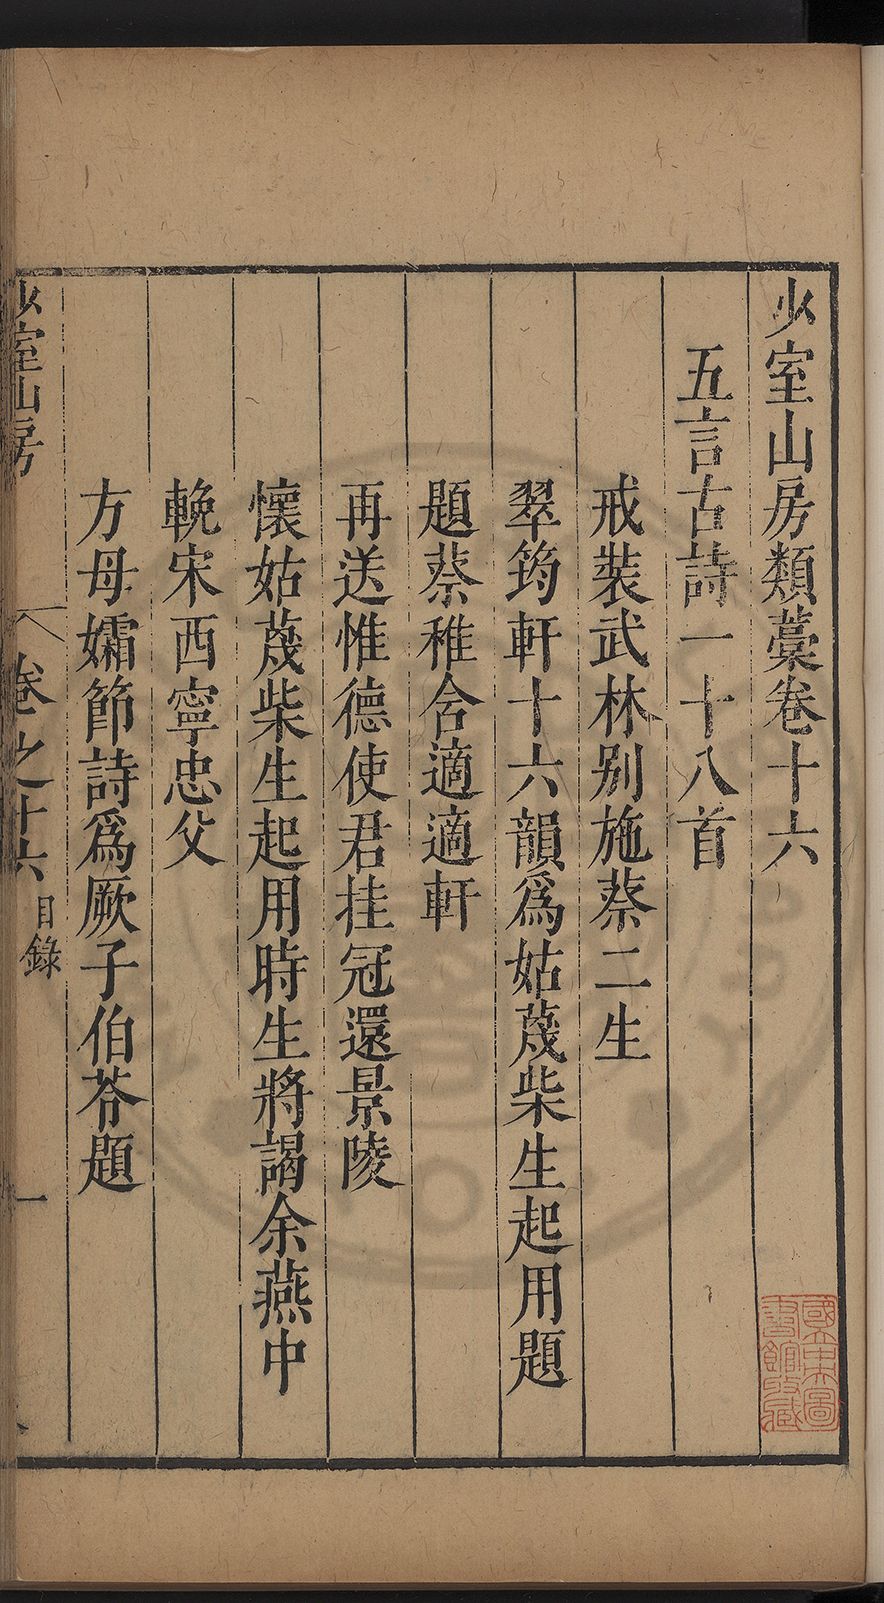 少室山房類藁卷十六
五言古詩一十八首
戒裝武林别施蔡二生
翠筠軒十六韻爲姑蔑柴生起用題
題蔡稚含適適軒
再送惟德使君挂冠還景陵
懷姑蔑柴生起用時生將謁余燕中
輓宋西寧忠父
方母孀節詩爲厥子伯荅題
少室山房
卷之十六
目錄
一
國立中央圖
書館收藏